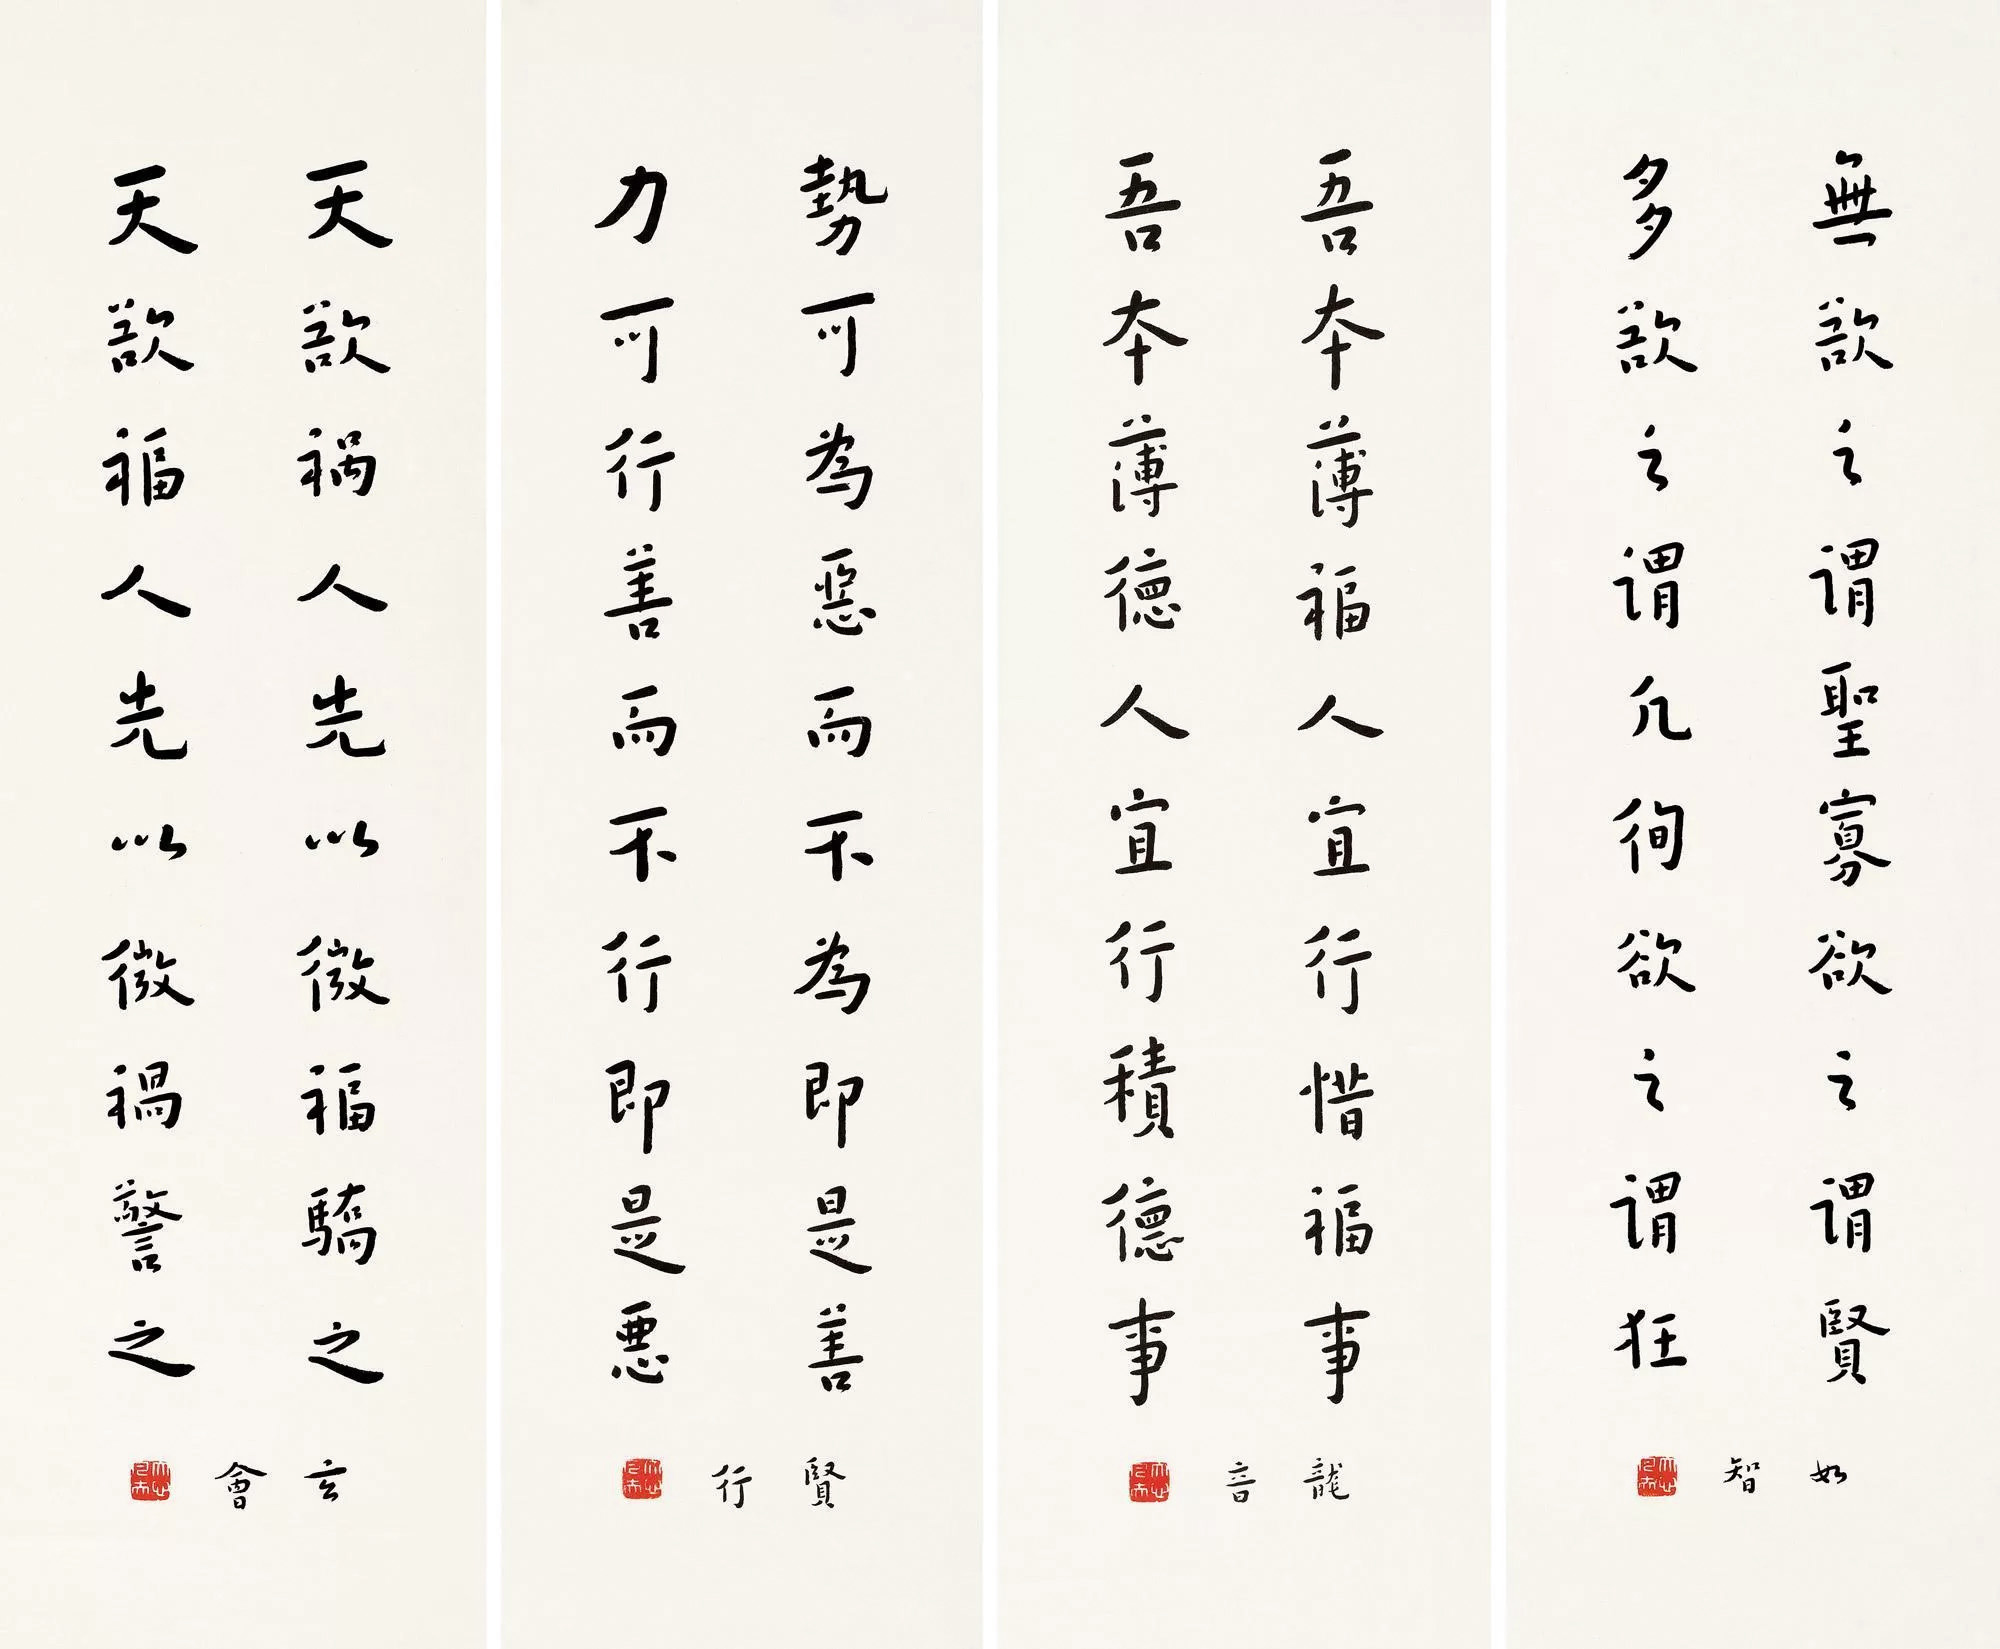 無欲之谓聖寡欲之谓賢
多欲之谓凢徇欲之谓狂
如智
吾本薄福人宜行惜福事
吾本薄德人宜行積德事
龍音
勢可為惡而不為即是善
力可行善而不行即是惡
賢行
天欲禍人先以微福驕之
天欲福人先以微禍警之
玄會